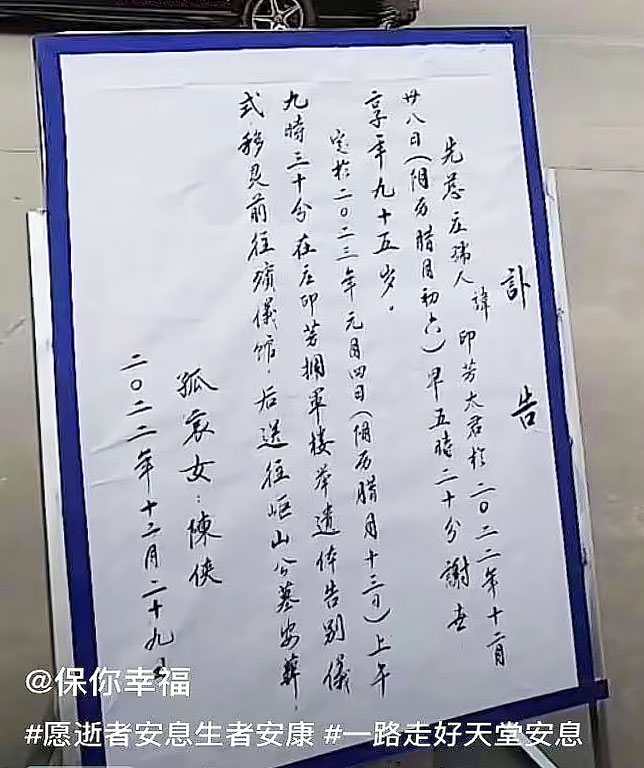 訃告
先慈庄孺人諱印芳太君於二〇二二年十二月
廿八日(阴历腊月初六)早五時二十分謝世
享年九十五岁。
定於二〇二三年元月四日(阴历腊月十三日)上午
九時三十分在庄印芳拥軍楼举遗体告别儀
式.移灵前往殯儀馆.后送往岖山公墓安葬.
孤哀女:陳侠
二〇二二年十二月二十九日
@保你幸福
#愿逝者安息生者安康 #一路走好天堂安息